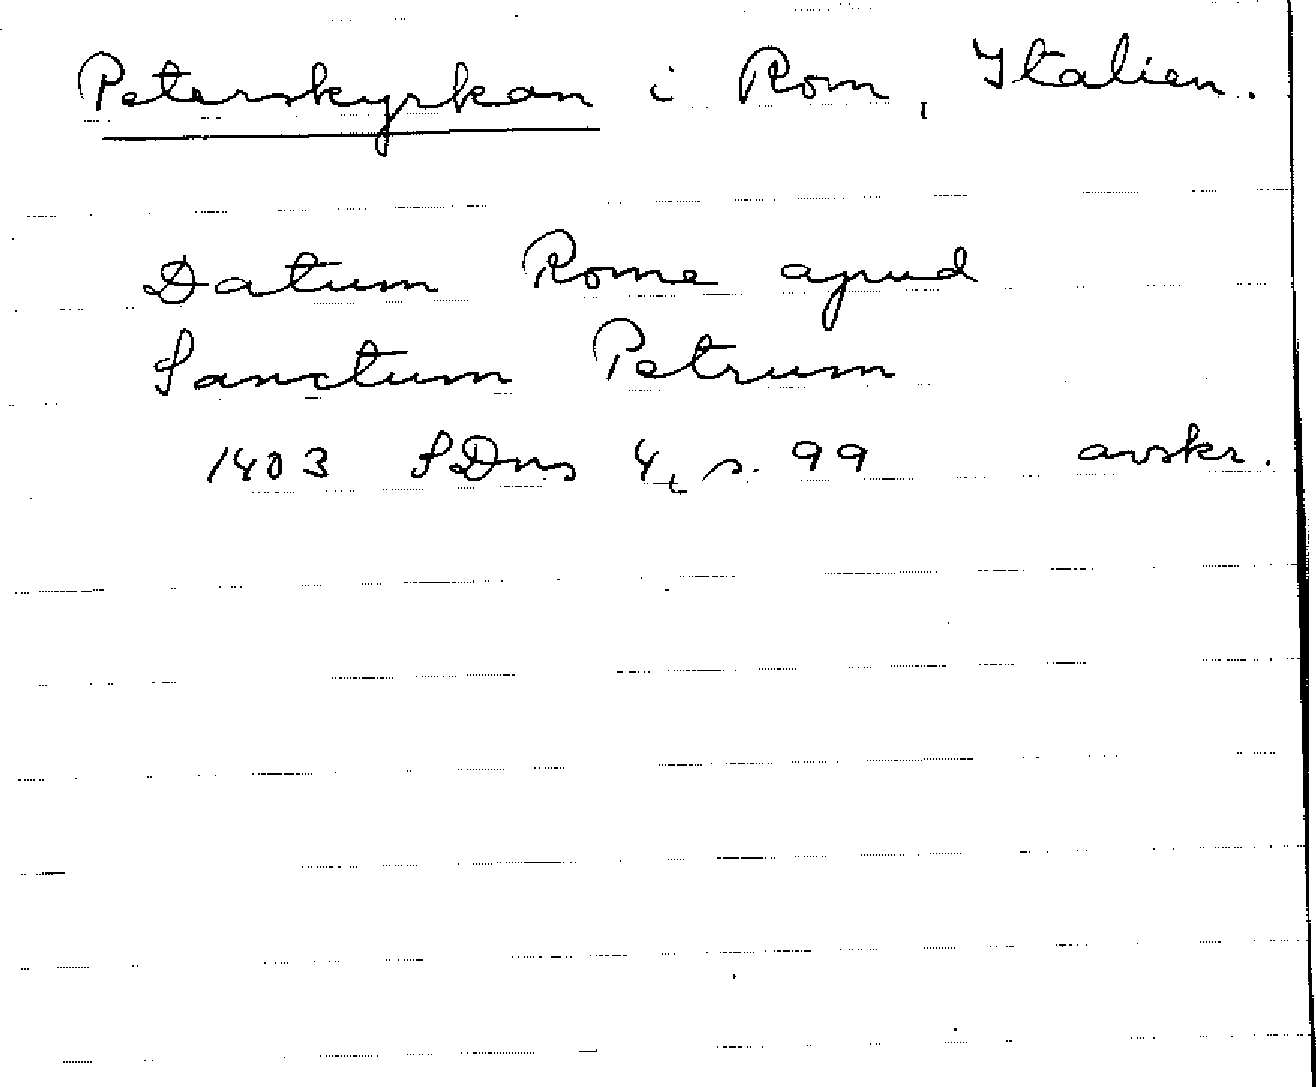 Peterskyrkan i Rom, Italien.
Datum Rome apud
Sanctum Petrum
1403 SDns 4, s. 99 avskr.